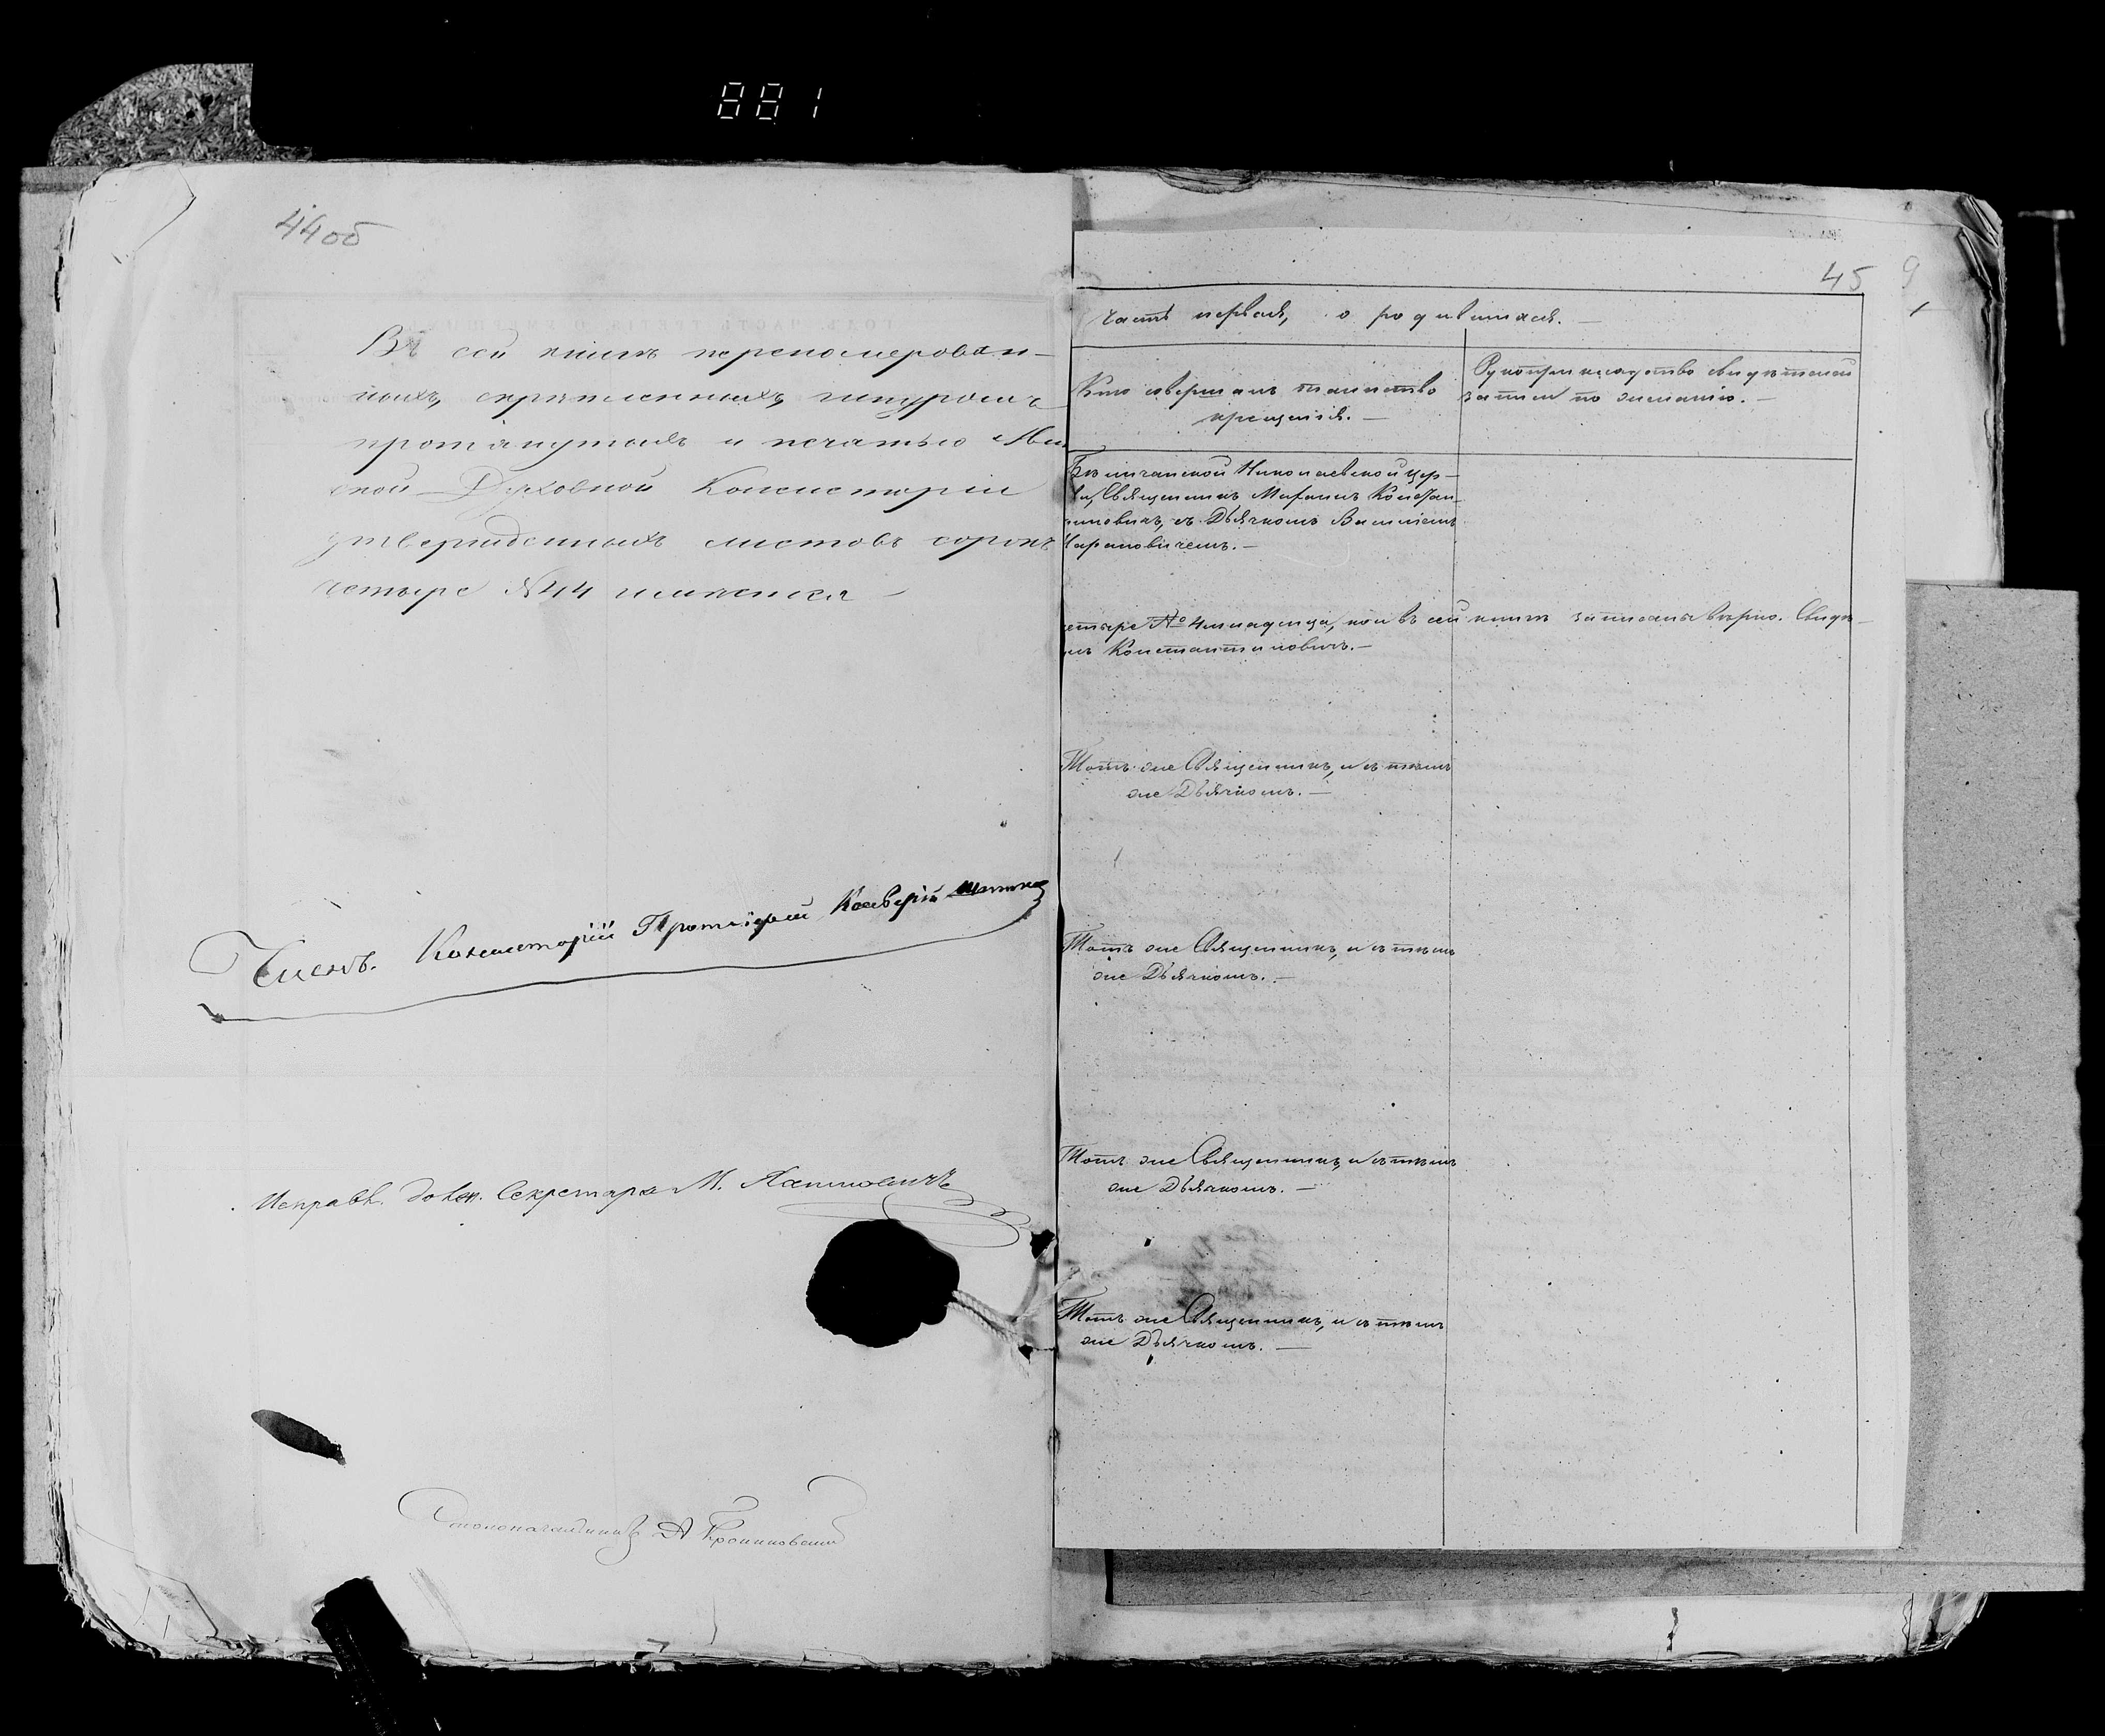 881
44об
Въ сей книгѣ переномерован-
ныхъ, скрѣпленныхъ, шнуромъ
протянутыхъ и печатью Мин
ской Духовной Консисторіи
утвержденныхъ листовъ сорокъ
четыре №44 имѣется
Членъ Консисторіи Протоіерей
Исправл. долж. Секретаря М.
Столоначальникъ А
45
9
Часть первая, о родившихся.
Кто совершалъ таинство
крещенія.
Рукоприкладство свидѣтелей
записи по желанію.
Николаевской цер-
кви, Священникъ Константи-
новичъ, съ Дьячкомъ
етыре № 4 младенца, кои въ сей книгѣ записаны вѣрно. Свидѣ-
Константиновичъ.
Тотъ же Священникъ, и съ тѣмъ
же Дьячкомъ.
Тотъ же Священникъ, и съ тѣмъ
же Дьячкомъ.
Тотъ же Священникъ, и съ тѣмъ
же Дьячкомъ.
Тотъ же Священникъ, и съ тѣмъ
же Дьячкомъ.